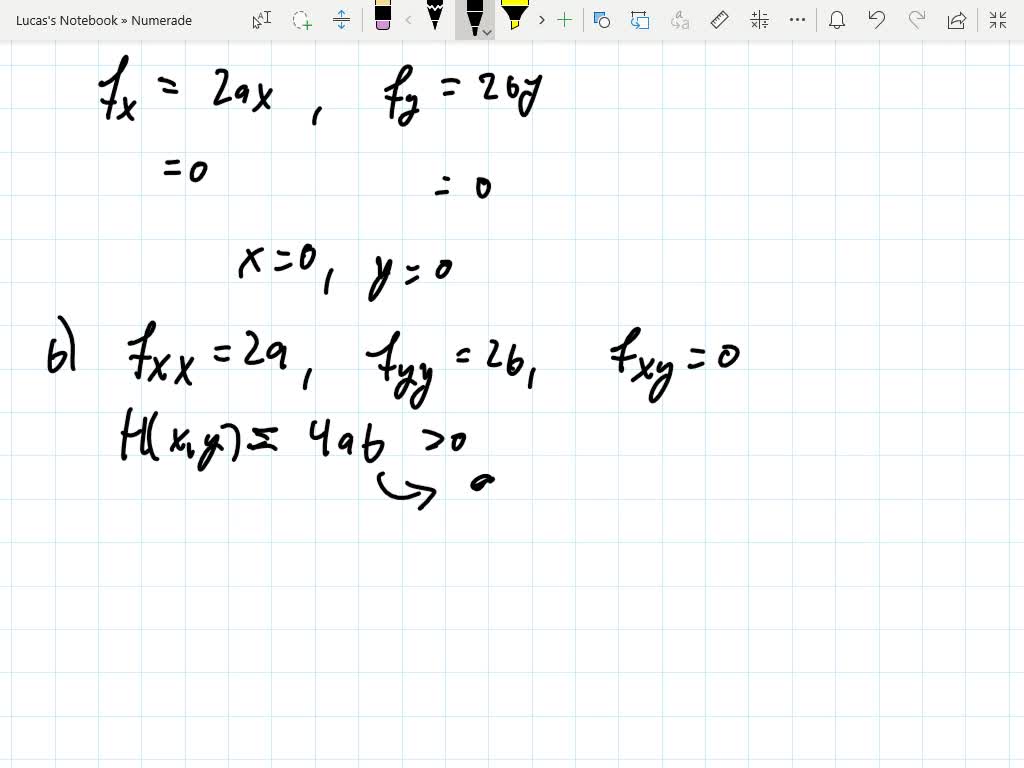 Lucas's Notebook » Numerade
f_x = 2ax , f_y = 2by
= 0 = 0
x = 0 , y = 0
b) f_xx = 2a , f_yy = 2b , f_xy = 0
H(x,y) = 4ab > 0